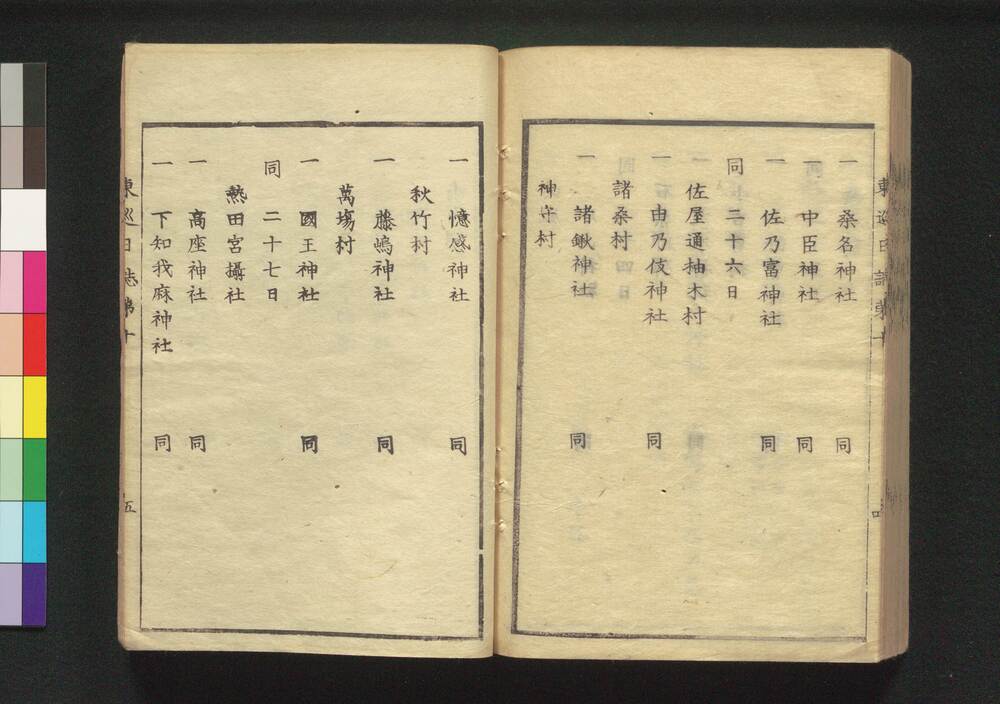 一 桑名神社 同
一 中臣神社 同
一 佐乃富神社 同
同 二十六日
佐屋通抽木村
一 由乃伎神社 同
諸桑村
一 諸鍬神社 同
神守村
一 憶感神社 同
秋竹村
一 藤嶋神社 同
萬塲村
一 國王神社 同
同 二十七日
熱田宮攝社
一 高座神社 同
一 下知我麻神社 同
東巡日誌第十 五